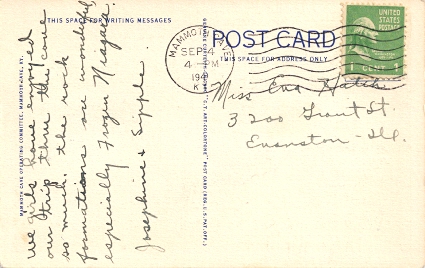 THIS SPACE FOR WRITING MESSAGES
We girls have enjoyed
our trip thru the cave
so much. the rock
formations are wonderful,
especially Frozen Niagara.
Josephine & Sipple
MAMMOTH CAVE OPERATING COMMITTEE, MAMMOTH CAVE, KY.
POST CARD
THIS SPACE FOR ADDRESS ONLY
MAMMOTH CAVE
SEP 4
4 PM
194
KY
UNITED
STATES
POSTAGE
1 CENT 1
Miss Eva Hatch
3200 Grant St.
Evanston - Ill.